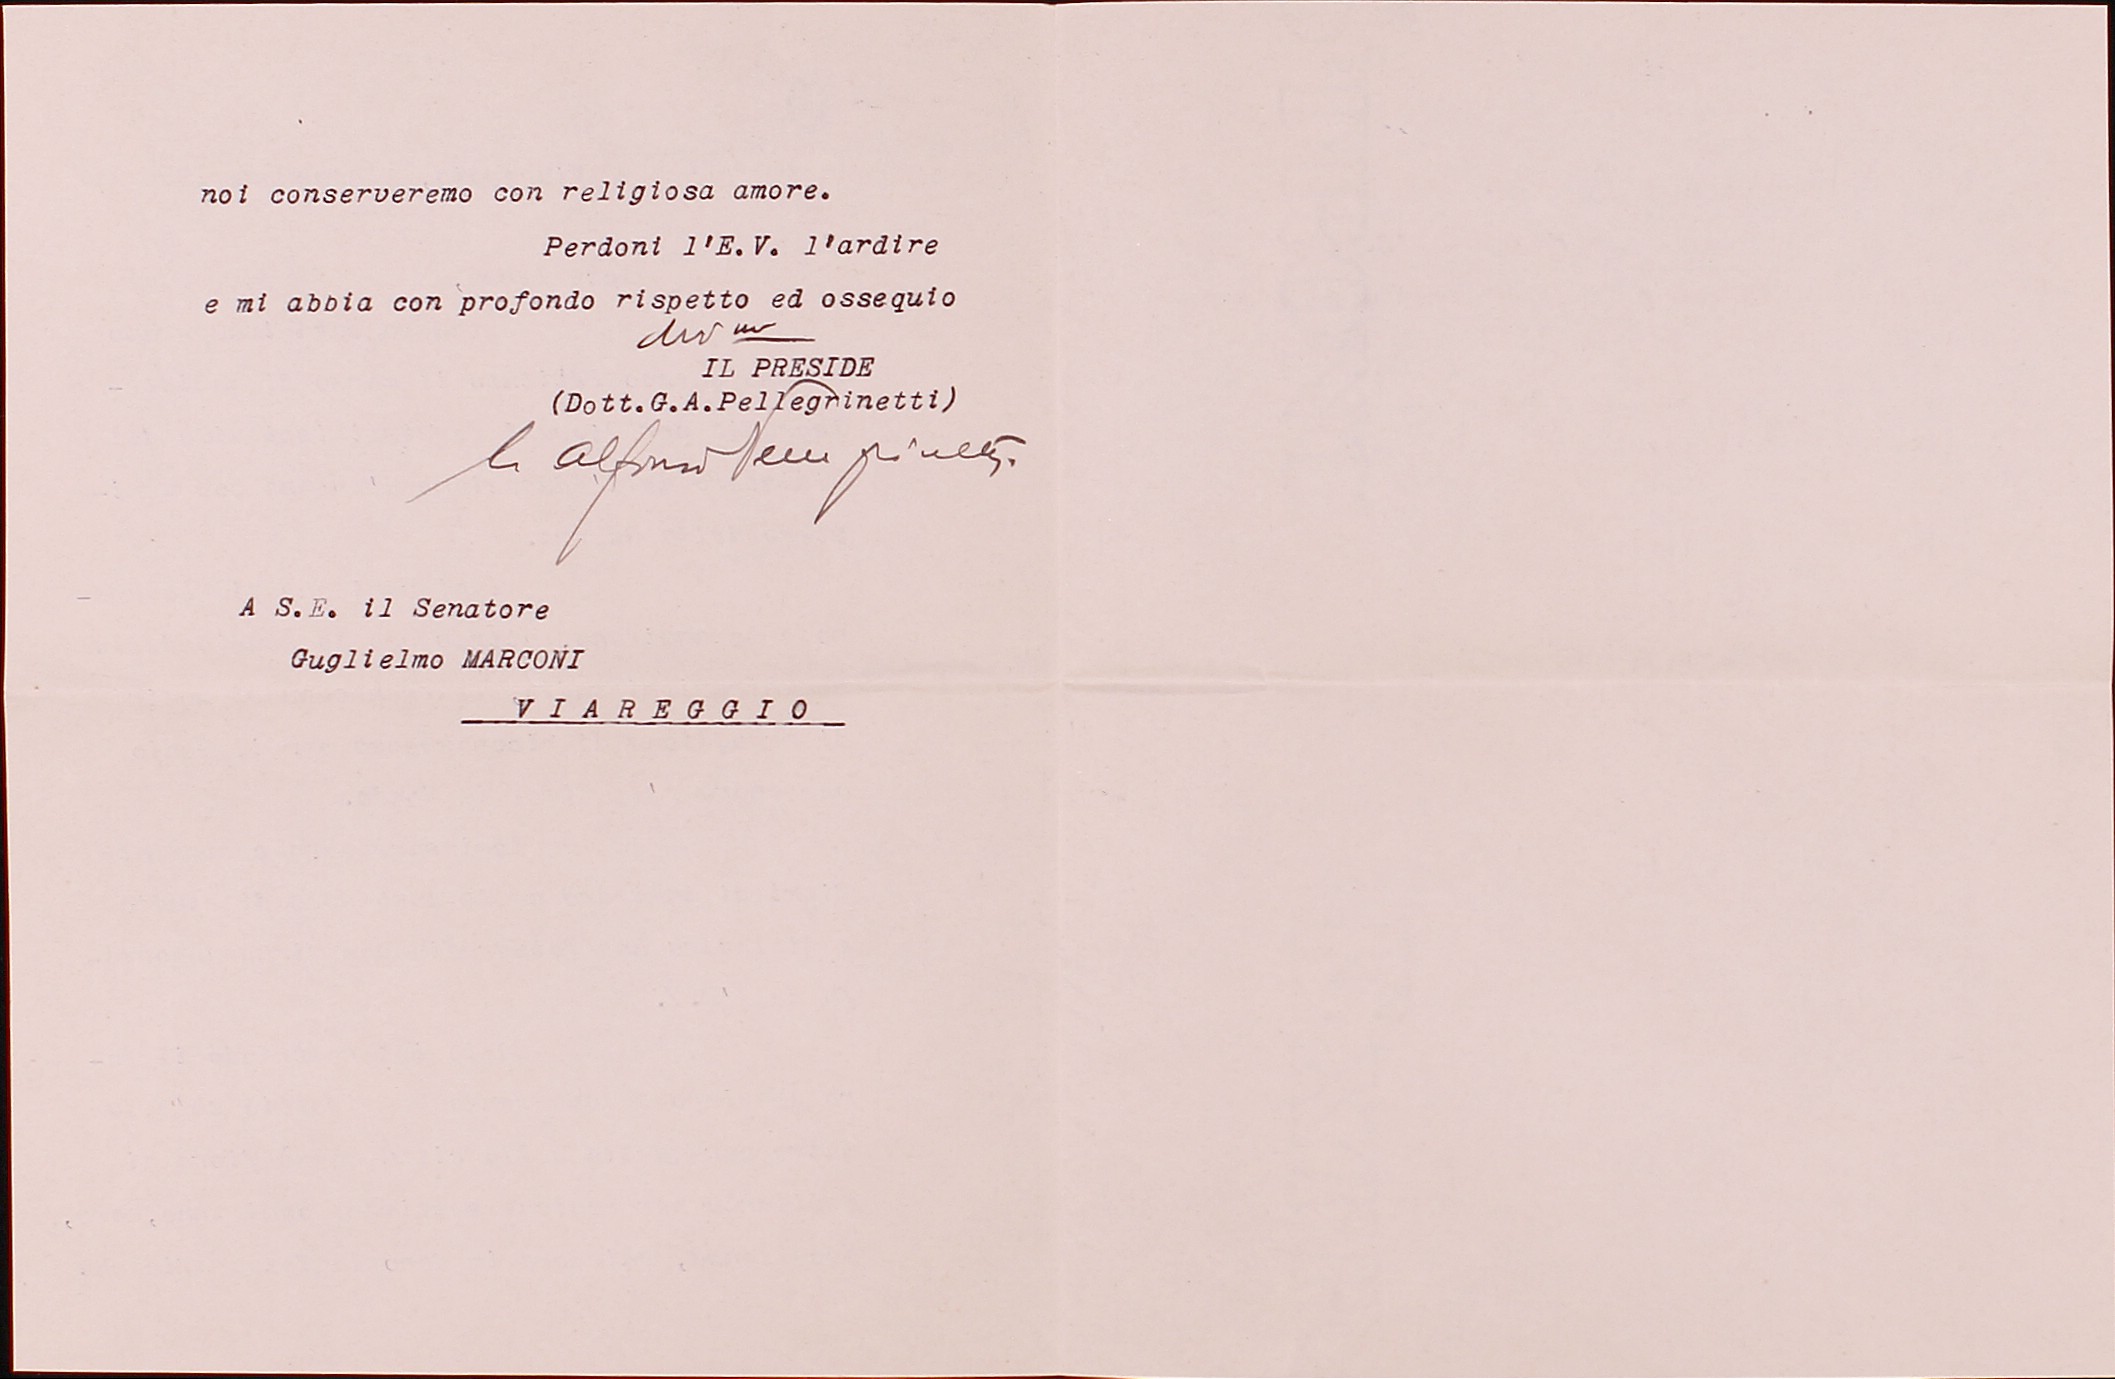 noi conserveremo con religiosa amore.
Perdoni l'E.V. l'ardire
e mi abbia con profondo rispetto ed ossequio
dev mo
IL PRESIDE
(Dott.G.A.Pellegrinetti)
G. Alfonso Pellegrinetti
A S.E. il Senatore
Guglielmo MARCONI
VIAREGGIO